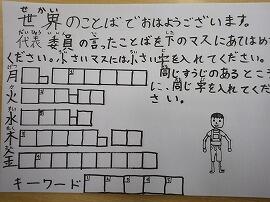 せかい
世界のことばでおはようございます。
だいひょう いいん
代表委員の言ったことばを下のマスにあてはめ
ください。小さいマスには小さい字を入れてください。
月
同じすうじのあるところ
火
に、同じ字を入れてくだ
水
さい。
木
金
キーワード